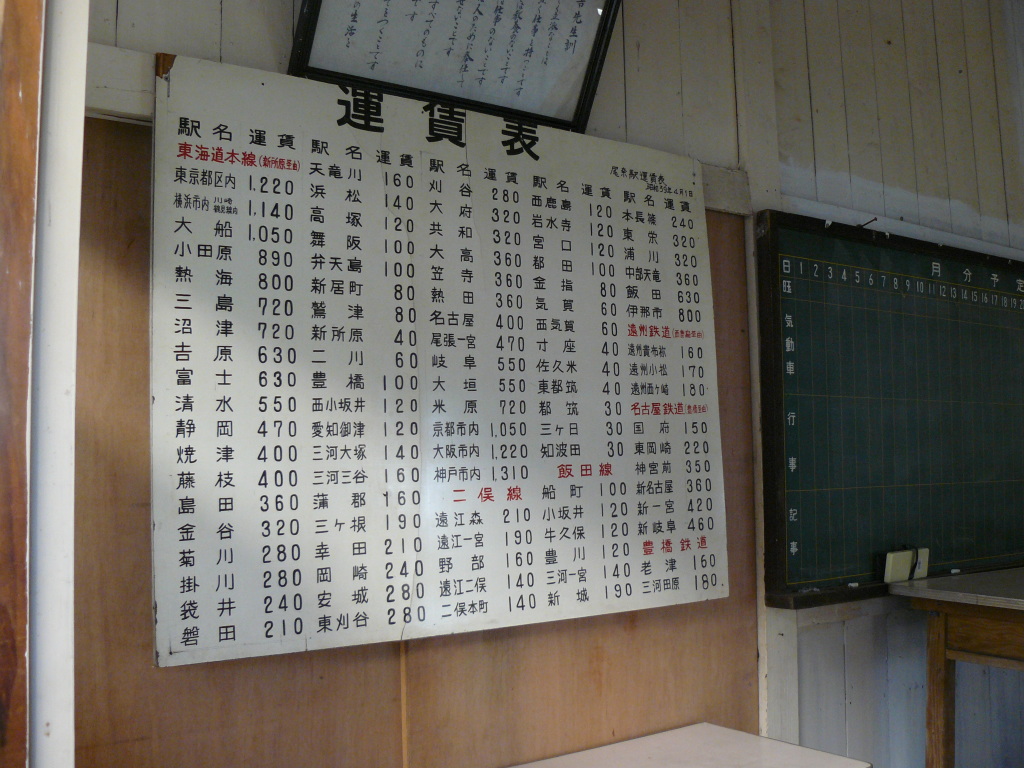 運賃表
尾奈駅運賃表
昭和59年4月1日
駅名 運賃
東海道本線(新所原至由)
東京都区内 1,220
横浜市内 1,140
大船 1,050
小田原 890
熱海 800
三島 720
沼津 720
吉原 630
富士 630
清水 550
静岡 470
焼津 400
藤枝 400
島田 360
金谷 320
菊川 280
掛川 280
袋井 240
磐田 210
駅名 運賃
天竜川 160
浜松 140
高塚 120
舞阪 100
弁天島 100
新居町 80
鷲津 80
新所原 40
二川 60
豊橋 100
西小坂井 120
愛知御津 120
三河大塚 140
三河三谷 160
蒲郡 160
三ヶ根 190
幸田 210
岡崎 240
安城 280
東刈谷 280
駅名 運賃
刈谷 280
大府 320
共和 320
大高 360
笠寺 360
熱田 360
名古屋 400
尾張一宮 470
岐阜 550
大垣 550
米原 720
京都市内 1,050
大阪市内 1,220
神戸市内 1,310
二俣線
遠江森 210
遠江一宮 190
野部 160
遠江二俣 140
二俣本町 140
駅名 運賃
西鹿島 120
岩水寺 120
宮口 120
都田 100
金指 80
気賀 60
西気賀 60
寸座 40
佐久米 40
東都筑 40
都筑 30
三ヶ日 30
知波田 30
飯田線
船町 100
小坂井 120
牛久保 120
豊川 120
三河一宮 140
新城 190
駅名 運賃
本長篠 240
東栄 320
浦川 320
中部天竜 360
飯田 630
伊那市 800
遠州鉄道
遠州貴布祢 160
遠州小松 170
遠州西ヶ崎 180
名古屋鉄道(豊橋至由)
国府 150
東岡崎 220
神宮前 350
新名古屋 360
新一宮 420
新岐阜 460
豊橋鉄道
老津 160
三河田原 180
月分予定
日 1 2 3 4 5 6 7 8 9 10 11 12 13 14 15 16 17 18 19
気動車
行事
記事